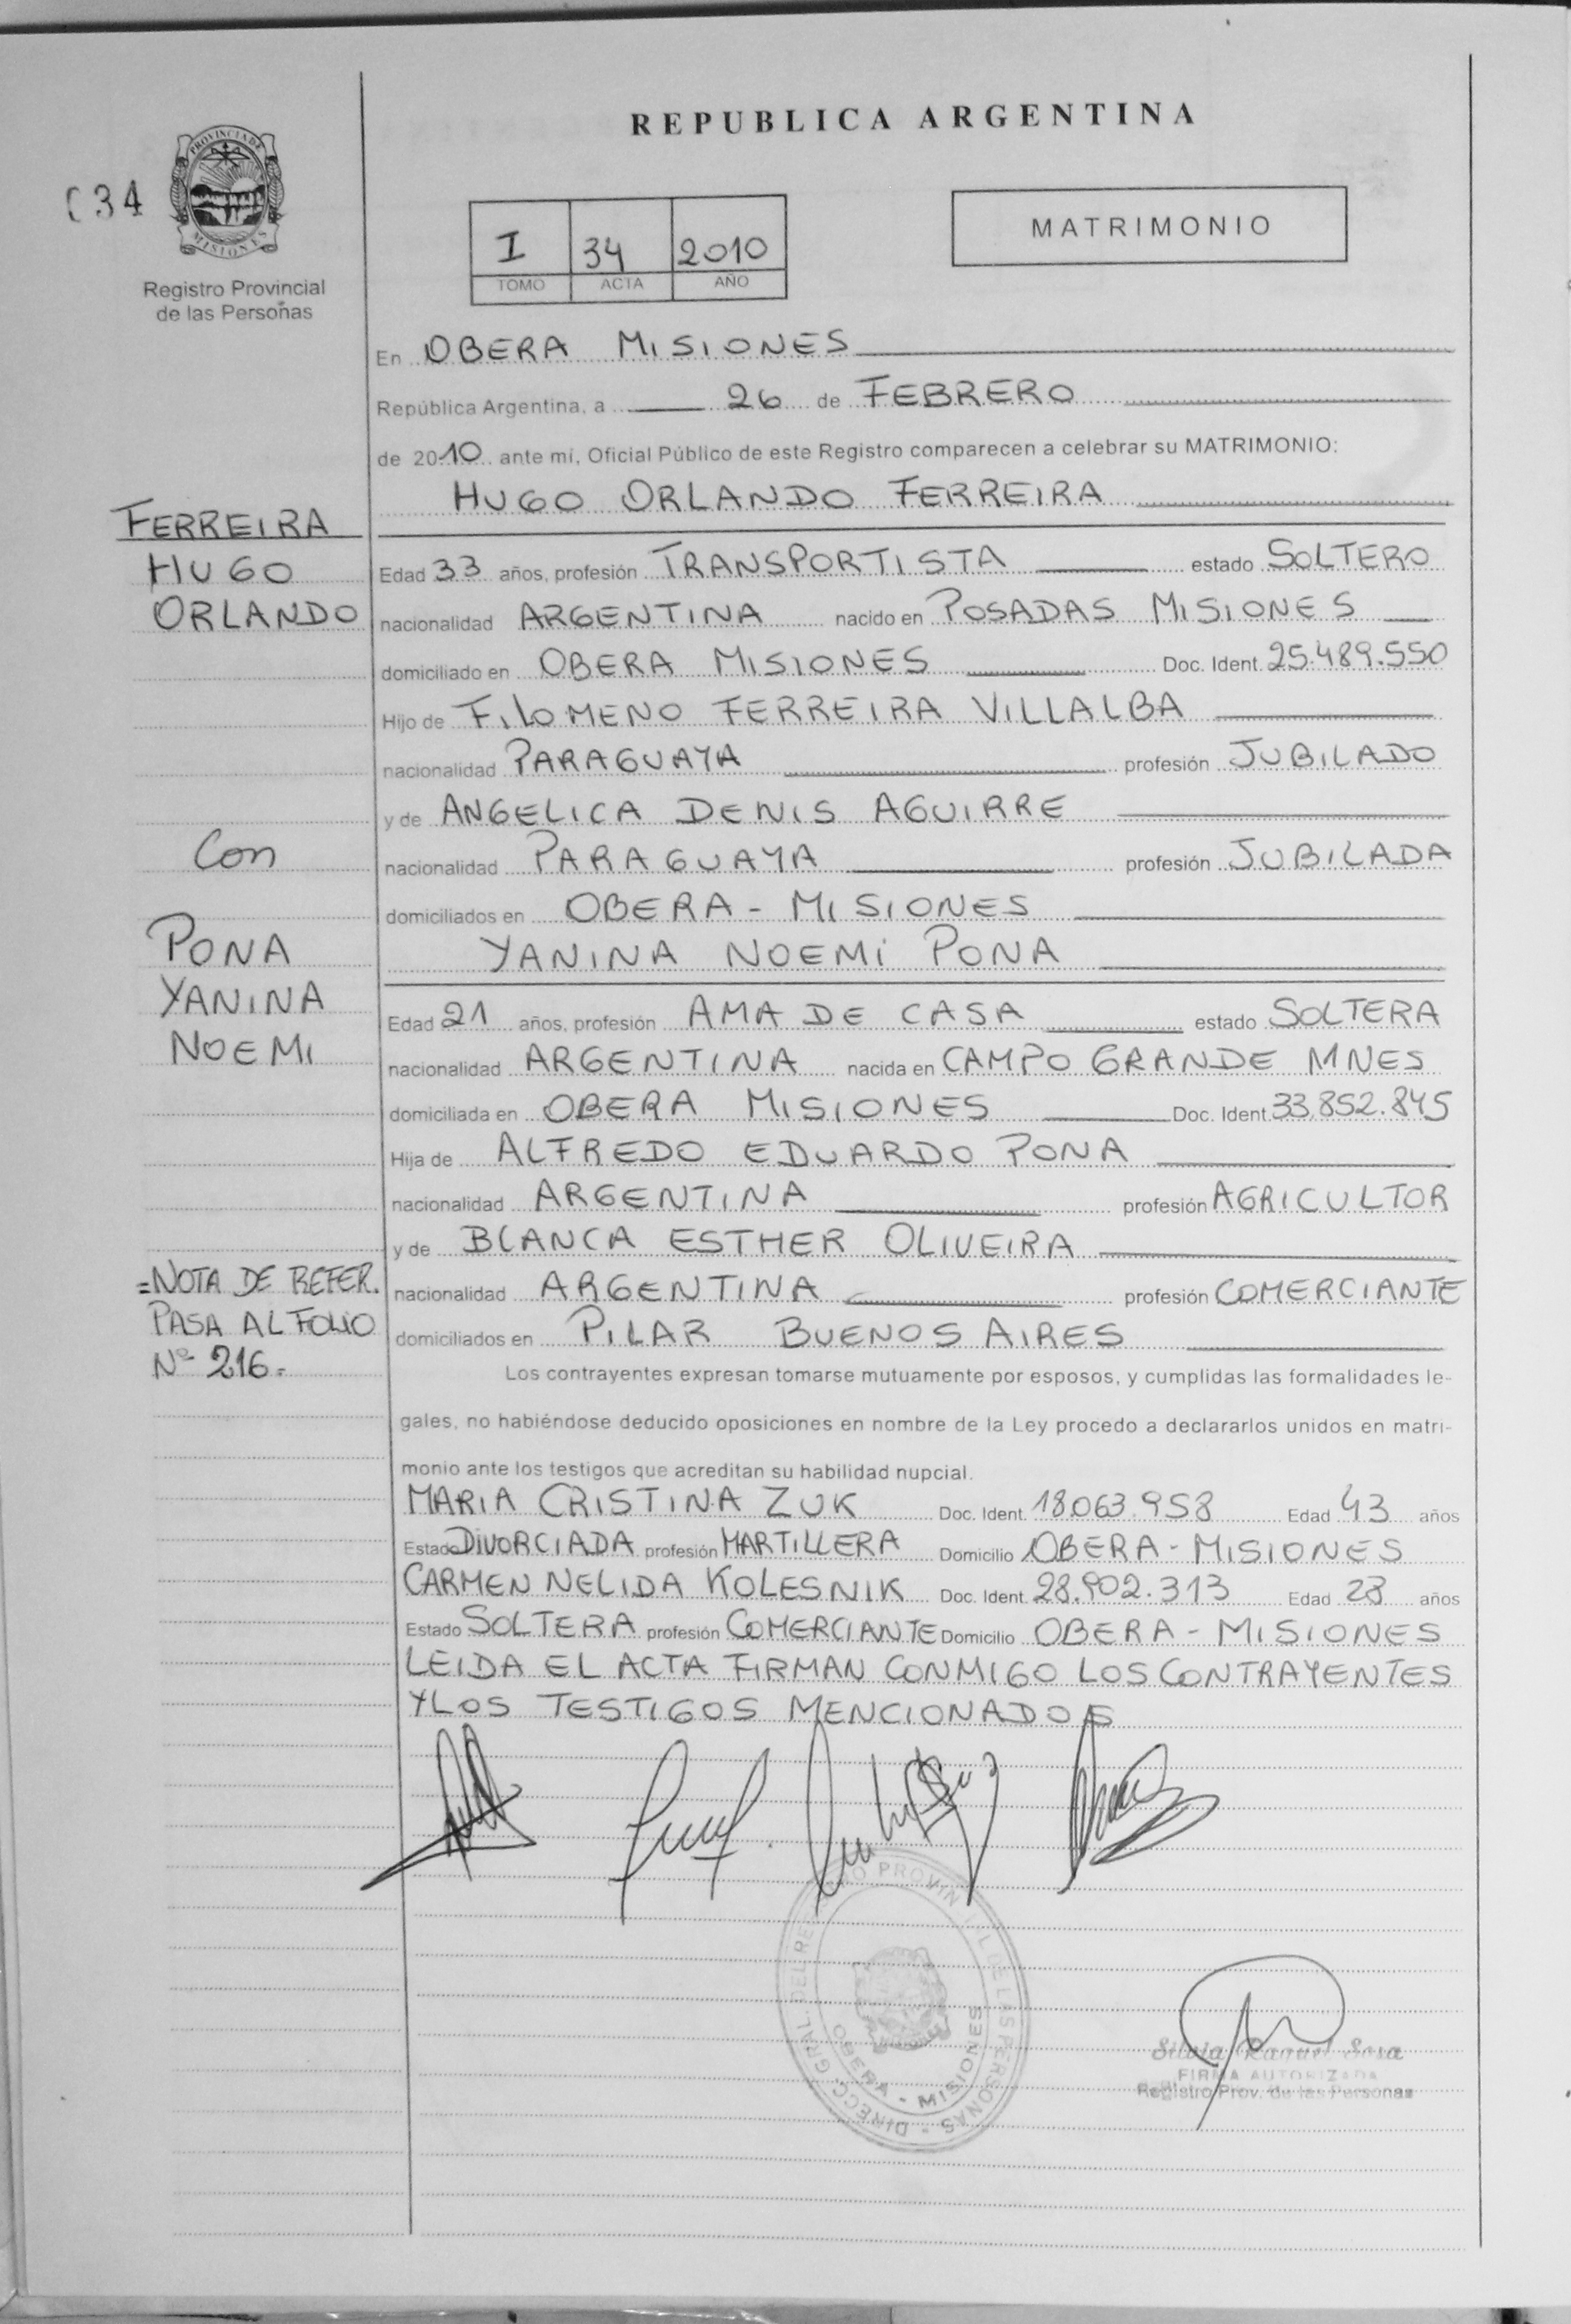 REPUBLICA ARGENTINA
034
PROVINCIA DE
MISIONES
Registro Provincial
de las Personas
I 34 2010
TOMO ACTA AÑO
MATRIMONIO
En OBERA MISIONES
República Argentina, a 26 de FEBRERO
de 2010 ante mí, Oficial Público de este Registro comparecen a celebrar su MATRIMONIO:
HUGO ORLANDO FERREIRA
FERREIRA
HUGO
ORLANDO
Edad 33 años, profesión TRANSPORTISTA estado SOLTERO
nacionalidad ARGENTINA nacido en POSADAS MISIONES
domiciliado en OBERA MISIONES Doc. Ident. 25.489.550
Hijo de FILOMENO FERREIRA VILLALBA
nacionalidad PARAGUAYA profesión JUBILADO
y de ANGELICA DENIS AGUIRRE
Con
nacionalidad PARAGUAYA profesión JUBILADA
domiciliados en OBERA - MISIONES
PONA
YANINA
NOEMI
YANINA NOEMI PONA
Edad 21 años, profesión AMA DE CASA estado SOLTERA
nacionalidad ARGENTINA nacida en CAMPO GRANDE MNES
domiciliada en OBERA MISIONES Doc. Ident. 33.852.845
Hija de ALFREDO EDUARDO PONA
nacionalidad ARGENTINA profesión AGRICULTOR
y de BLANCA ESTHER OLIVEIRA
=NOTA DE REFER.
PASA AL FOLIO
Nº 216.-
nacionalidad ARGENTINA profesión COMERCIANTE
domiciliados en PILAR BUENOS AIRES
Los contrayentes expresan tomarse mutuamente por esposos, y cumplidas las formalidades le-
gales, no habiéndose deducido oposiciones en nombre de la Ley procedo a declararlos unidos en matri-
monio ante los testigos que acreditan su habilidad nupcial.
MARIA CRISTINA ZUK Doc. Ident. 18.063.958 Edad 43 años
Estado DIVORCIADA profesión MARTILLERA Domicilio OBERA - MISIONES
CARMEN NELIDA KOLESNIK Doc. Ident. 28.902.313 Edad 28 años
Estado SOLTERA profesión COMERCIANTE Domicilio OBERA - MISIONES
LEIDA EL ACTA FIRMAN CONMIGO LOS CONTRAYENTES
Y LOS TESTIGOS MENCIONADOS
DIRECC. GRAL. DEL REGISTRO PROVINCIAL DE LAS PERSONAS -
OBERA - MISIONES
Silvia Raquel Sosa
FIRMA AUTORIZADA
Registro Prov. de las Personas